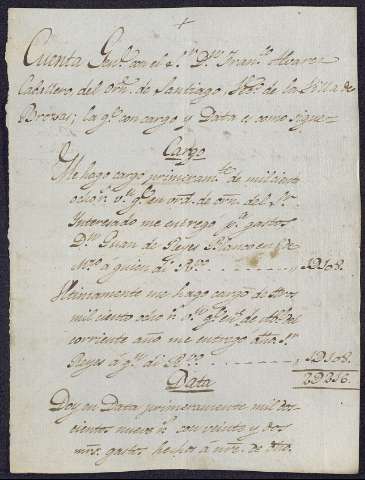 +
Cuenta Gen.l con el S.r D.n Fran.co Alvarez
Cavallero del Orn. de Santiago, Vez.o de la Villa de
Brozas; la q.e con cargo y Data es como sigue
Cargo
Me hago cargo primeram.te de mil ciento
ocho r.s v.n q.e en ord.n de orn. del S.r
Interesado me entregó p.a gastos
D.n Juan de Reyes Blanco en
á quien dí R.vo 1D108.
Ultimamente me hago cargo de otros
mil ciento ocho r.s v.n q.e en
corriente año me entregó dho. S.r
Reyes á q.n dí R.vo 1D108.
2D216.
Data
Doy en Data primeramente mil dos-
cientos nueve r.s con veinte y dos
mrs. gastos hechos á nre. de dho.